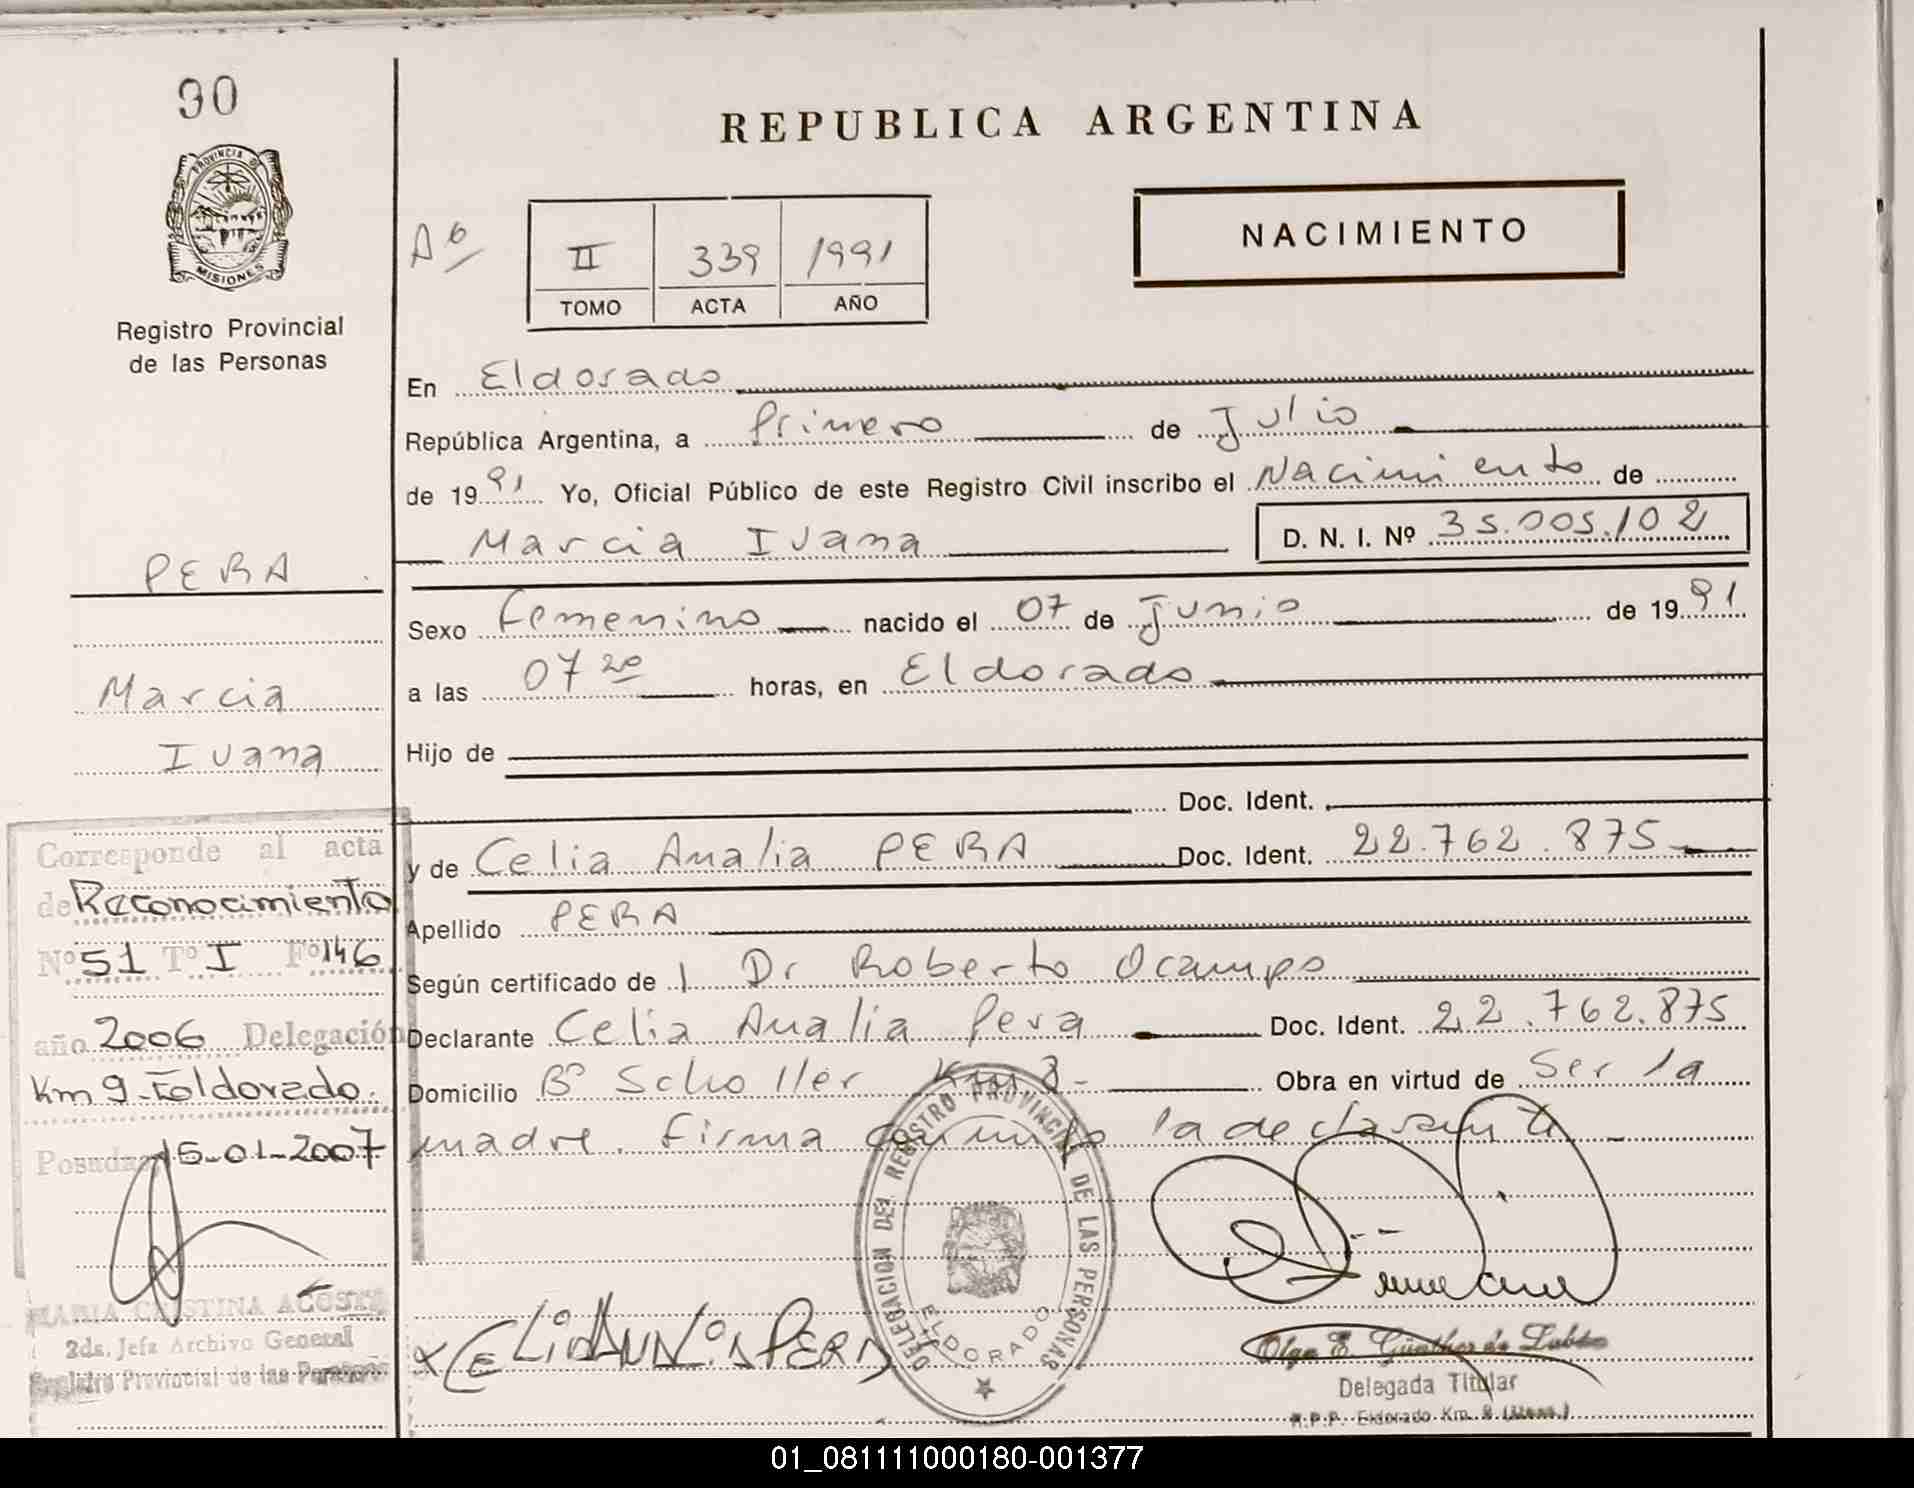 90
REPUBLICA ARGENTINA
PROVINCIA DE
MISIONES
Registro Provincial
de las Personas
Aº
II 339 1991
TOMO ACTA AÑO
NACIMIENTO
En Eldorado
República Argentina, a Primero de Julio
de 1991 Yo, Oficial Público de este Registro Civil inscribo el Nacimiento de
Marcia Ivana D. N. I. Nº 35.005.102
PERA
Marcia
Ivana
Sexo Femenino nacido el 07 de Junio de 1991
a las 07 20 horas, en Eldorado
Hijo de
Doc. Ident.
y de Celia Analia PERA Doc. Ident. 22.762.875
Apellido PERA
Según certificado de Dr Roberto Ocampo
Declarante Celia Analia Pera Doc. Ident. 22.762.875
Domicilio Bº Scholler Km 8- Obra en virtud de Ser la
madre. Firma conmigo la declarante
Corresponde al acta
de Reconocimiento
Nº 51 Tº I Fº 146
año 2006 Delegación
Km 9-Eldorado.
Posadas 15-01-2007
MARIA CRISTINA ACOSTA
2da. Jefa Archivo General
Registro Provincial de las Personas
CELIA ANALIA PERA
DELEGACION DEL REGISTRO PROVINCIAL DE LAS PERSONAS
ELDORADO
Olga E. Günther de Lubke
Delegada Titular
R.P.P. Eldorado Km. 8 (Mnes.)
01_081111000180-001377